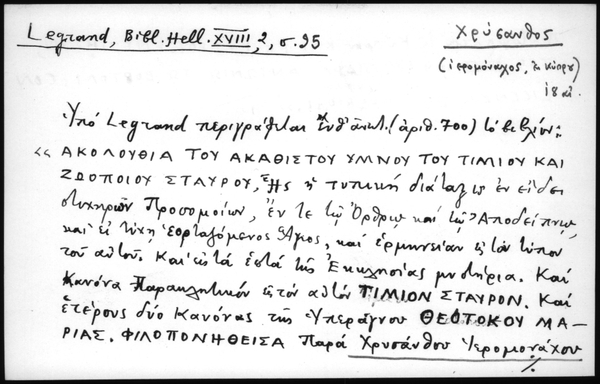 Legrand, Bibl. Hell. XVIII, 2, σ. 95
Χρύσανθος
(ἱερομόναχος, ἐκ Κύπρου)
18 αἰ.
Ὑπὸ Legrand περιγράφεται ἐνθ' ἀνωτ. (ἀριθ. 700) τὸ βιβλίον:
« ΑΚΟΛΟΥΘΙΑ ΤΟΥ ΑΚΑΘΙΣΤΟΥ ΥΜΝΟΥ ΤΟΥ ΤΙΜΙΟΥ ΚΑΙ
ΖΩΟΠΟΙΟΥ ΣΤΑΥΡΟΥ, ἧς ἡ τυπικὴ διάταξις ἐν εἴδει
στιχηρῶν Προσομοίων, ἔν τε τῷ Ὄρθρῳ καὶ τῷ Ἀποδείπνῳ,
καὶ εἰ τύχῃ ἑορταζόμενος Ἅγιος, καὶ ἑρμηνείαν εἰς τὸν τύπον
τοῦ αὐτοῦ. Καὶ εἰς τὰ ἑπτὰ τῆς Ἐκκλησίας μυστήρια. Καὶ
Κανόνα Παρακλητικὸν εἰς τὸν αὐτὸν ΤΙΜΙΟΝ ΣΤΑΥΡΟΝ. Καὶ
ἑτέρους δύο Κανόνας τῆς Ὑπεράγνου ΘΕΟΤΟΚΟΥ ΜΑ-
ΡΙΑΣ. ΦΙΛΟΠΟΝΗΘΕΙΣΑ παρὰ Χρυσάνθου Ἱερομονάχου
./.